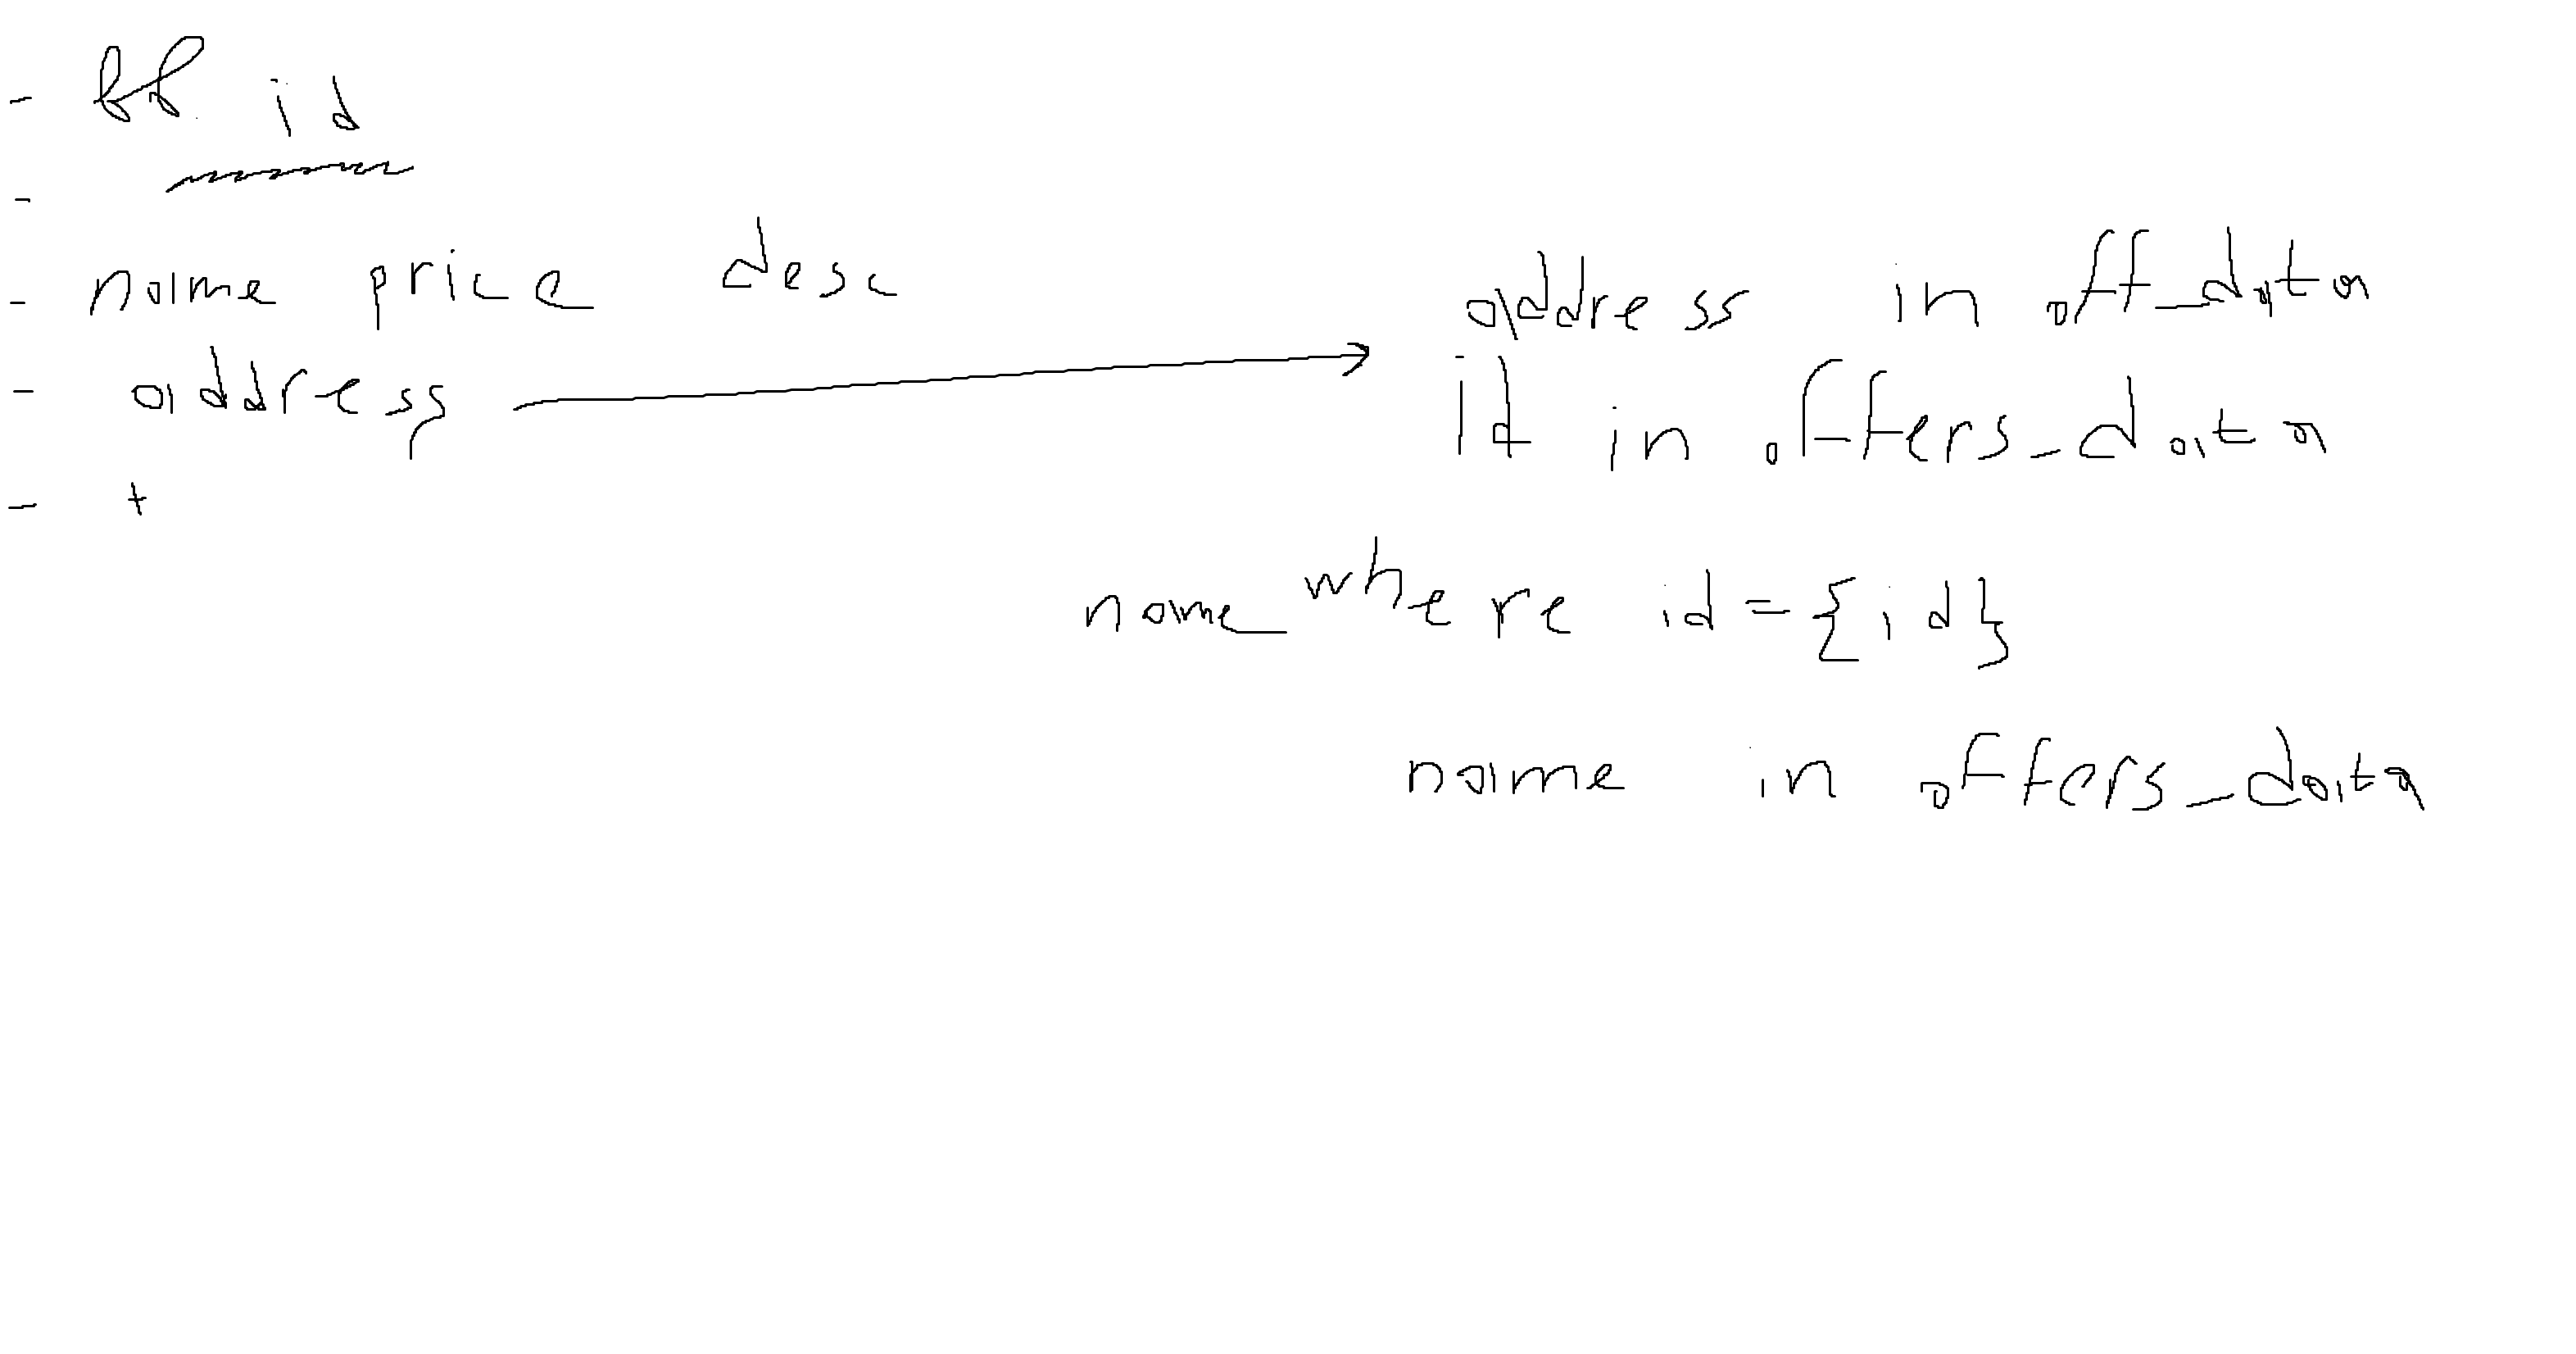 - id
-
- name price desc
- address
- +
address in off_data
id in offers_data
name where id = {id}
name in offers_data